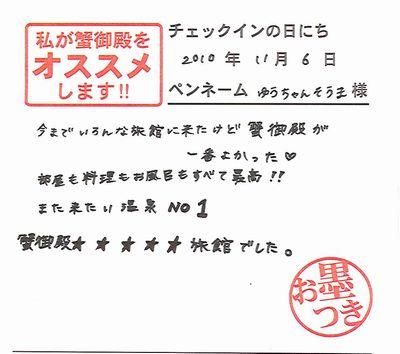 私が蟹御殿を
オススメ
します!!
チェックインの日にち
2010 年 11 月 6 日
ペンネーム ゆうちゃんそう王 様
今までいろんな旅館に来たけど 蟹御殿が
一番よかった♡
部屋も料理もお風呂もすべて最高!!
また来たい温泉 NO 1
蟹御殿★★★★★旅館でした。
お墨
つき